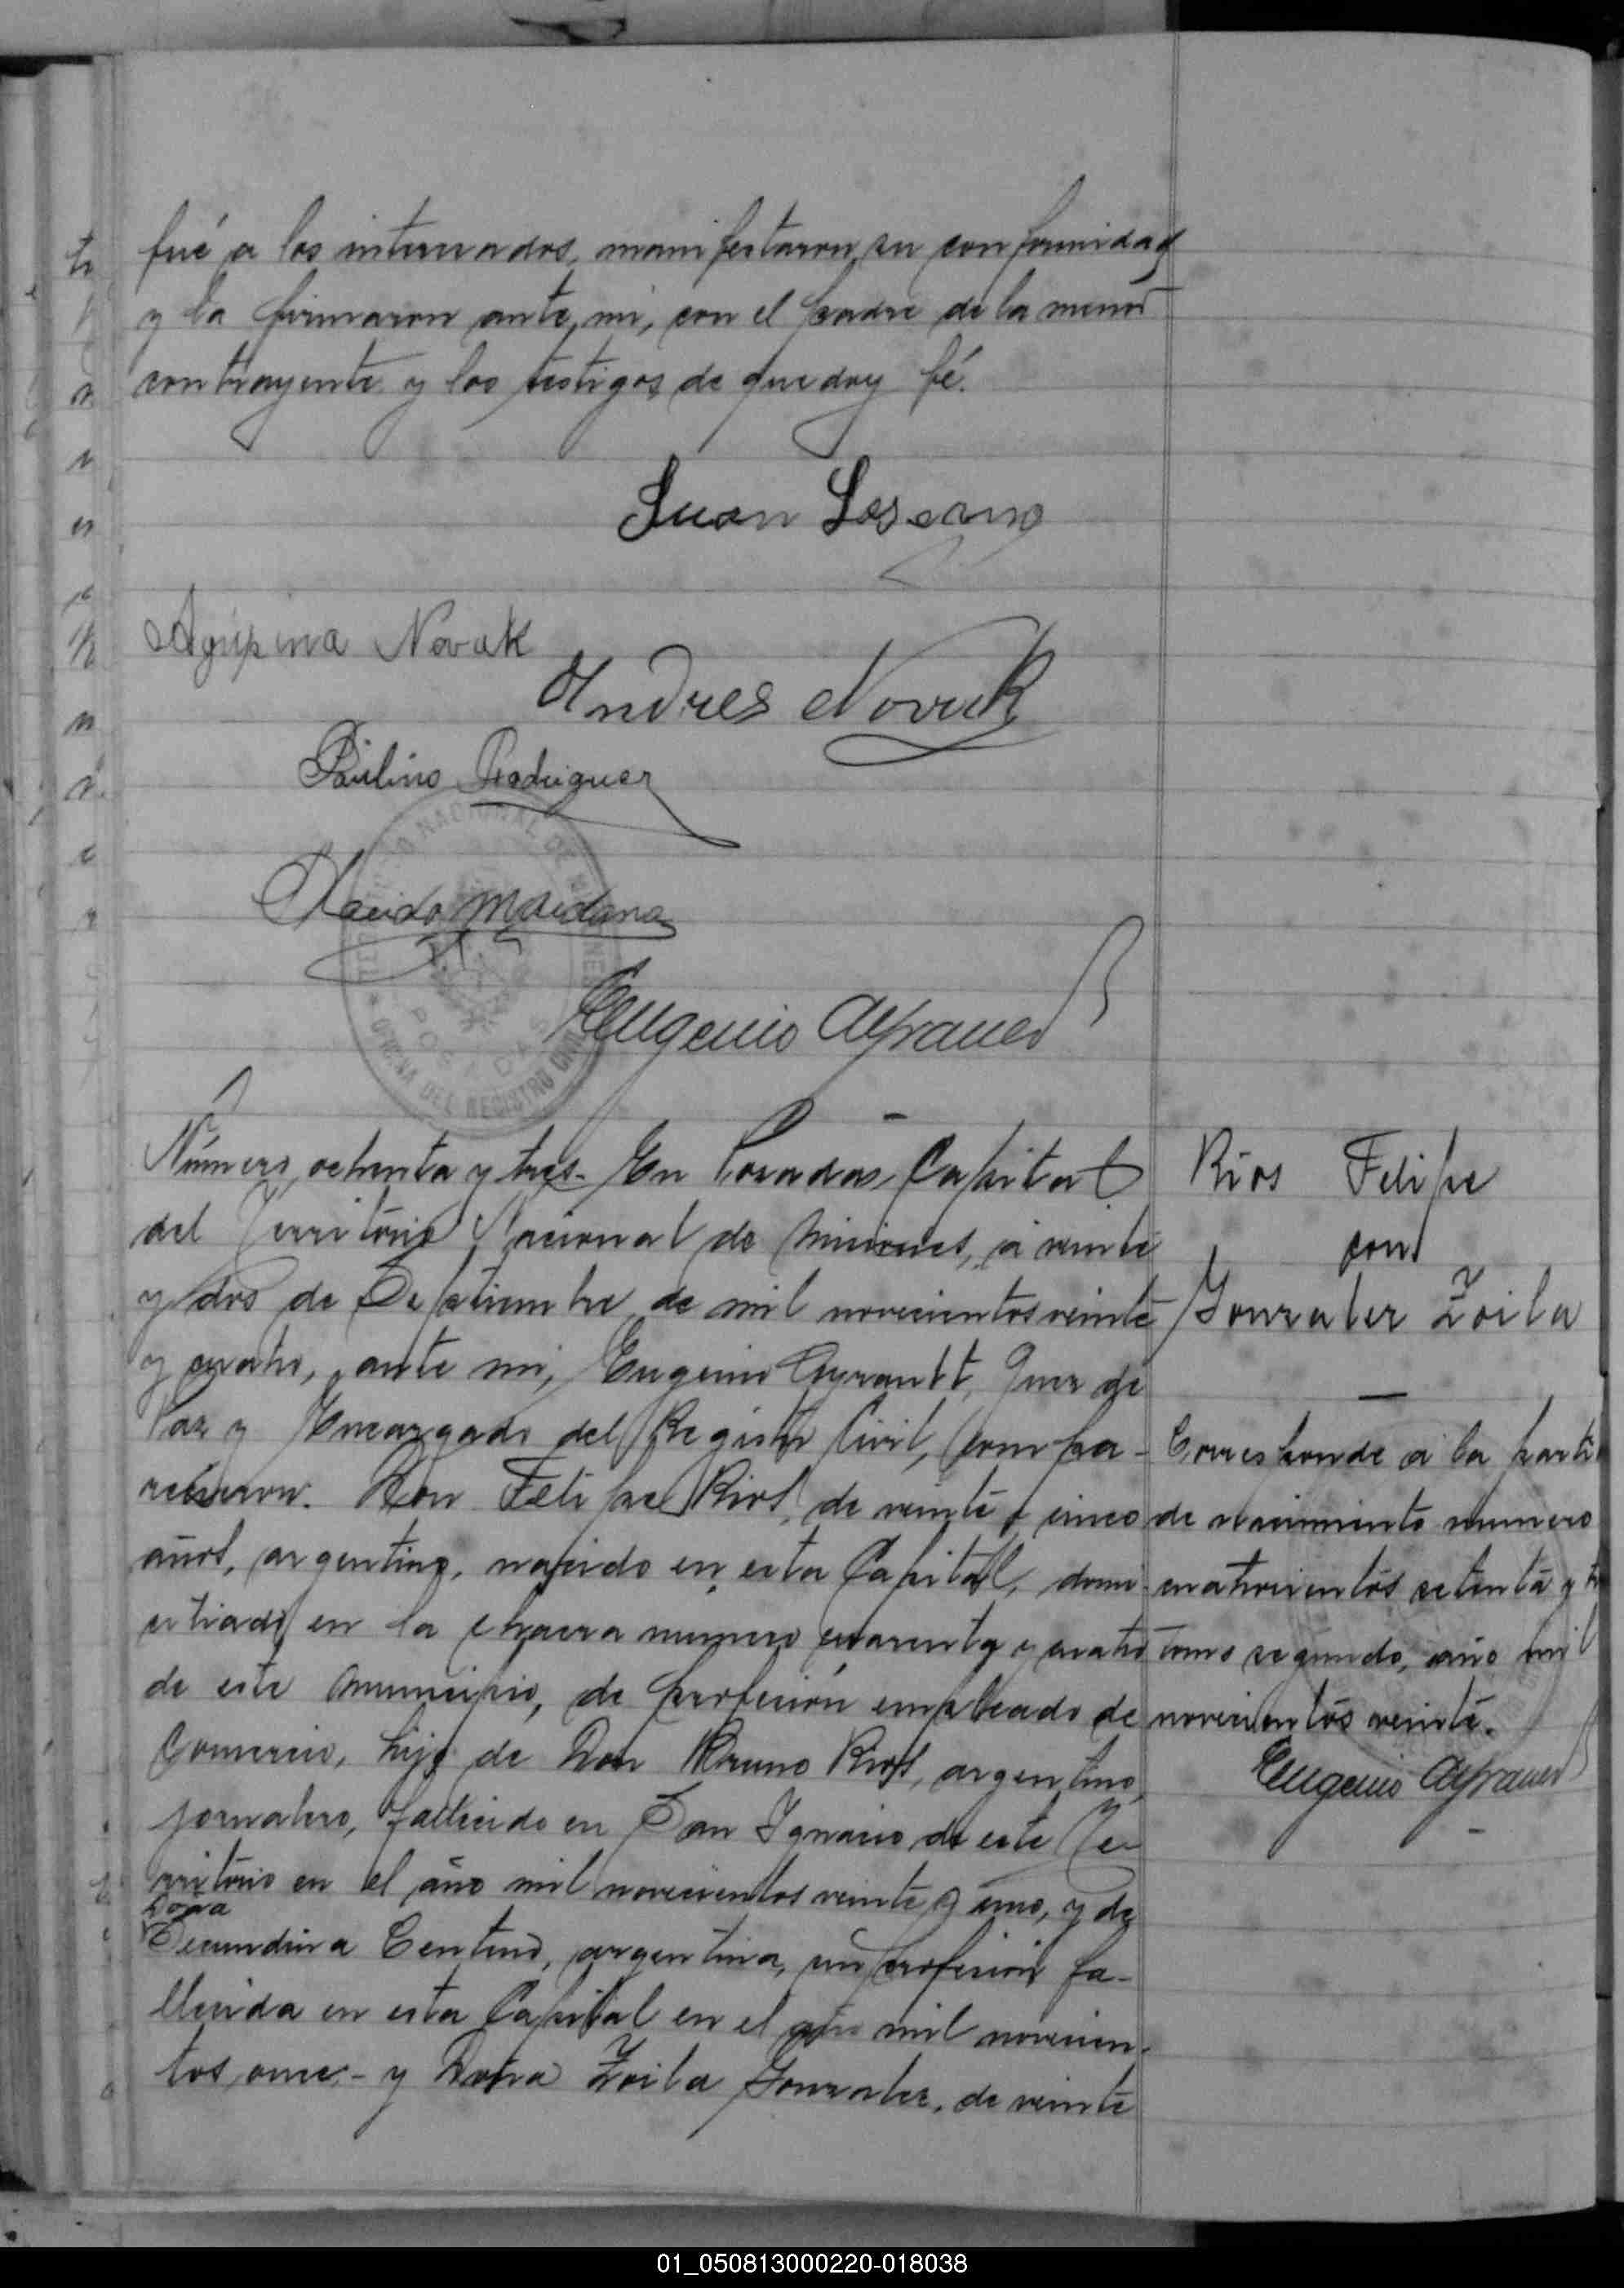 fué a los interesados, manifestaron su conformidad
y la firmaron ante mi, con el padre de la menor
contrayente y los testigos de que doy fé.
Juan Loscano
Agripina Novak
Andres Novak
Paulino Rodriguez
Placido Maidana
Eugenio Ayrault
TERRITORIO NACIONAL DE MISIONES
POSADAS
OFICINA DEL REGISTRO CIVIL
Número ochenta y tres- En Posadas, Capital
del Territorio Nacional de Misiones, á veinte
y dos de Septiembre de mil novecientos veinte
y cuatro, ante mi, Eugenio Ayrault, Juez de
Paz y Encargado del Registro Civil, compa-
recieron. Don Felipe Rios, de veinte y cinco
años, argentino, nacido en esta Capital, domi-
ciliado en la chacra numero cuarenta y cuatro
de este municipio, de profesión empleado de
Comercio, hijo de Don Bruno Rios, argentino,
jornalero, fallecido en San Ignacio de este Te-
rritorio en el año mil novecientos veinte y uno, y de
Doña
Secundina Centeno, argentina, sin profesión fa-
llecida en esta Capital en el año mil novecien-
tos once.- y Doña Zoila Gonzalez, de veinte
Rios Felipe
con
Gonzalez Zoila
Corresponde a la parti
de nacimiento numero
cuatrocientos setenta y
tomo segundo, año mil
novecientos veinte.
Eugenio Ayrault
01_050813000220-018038